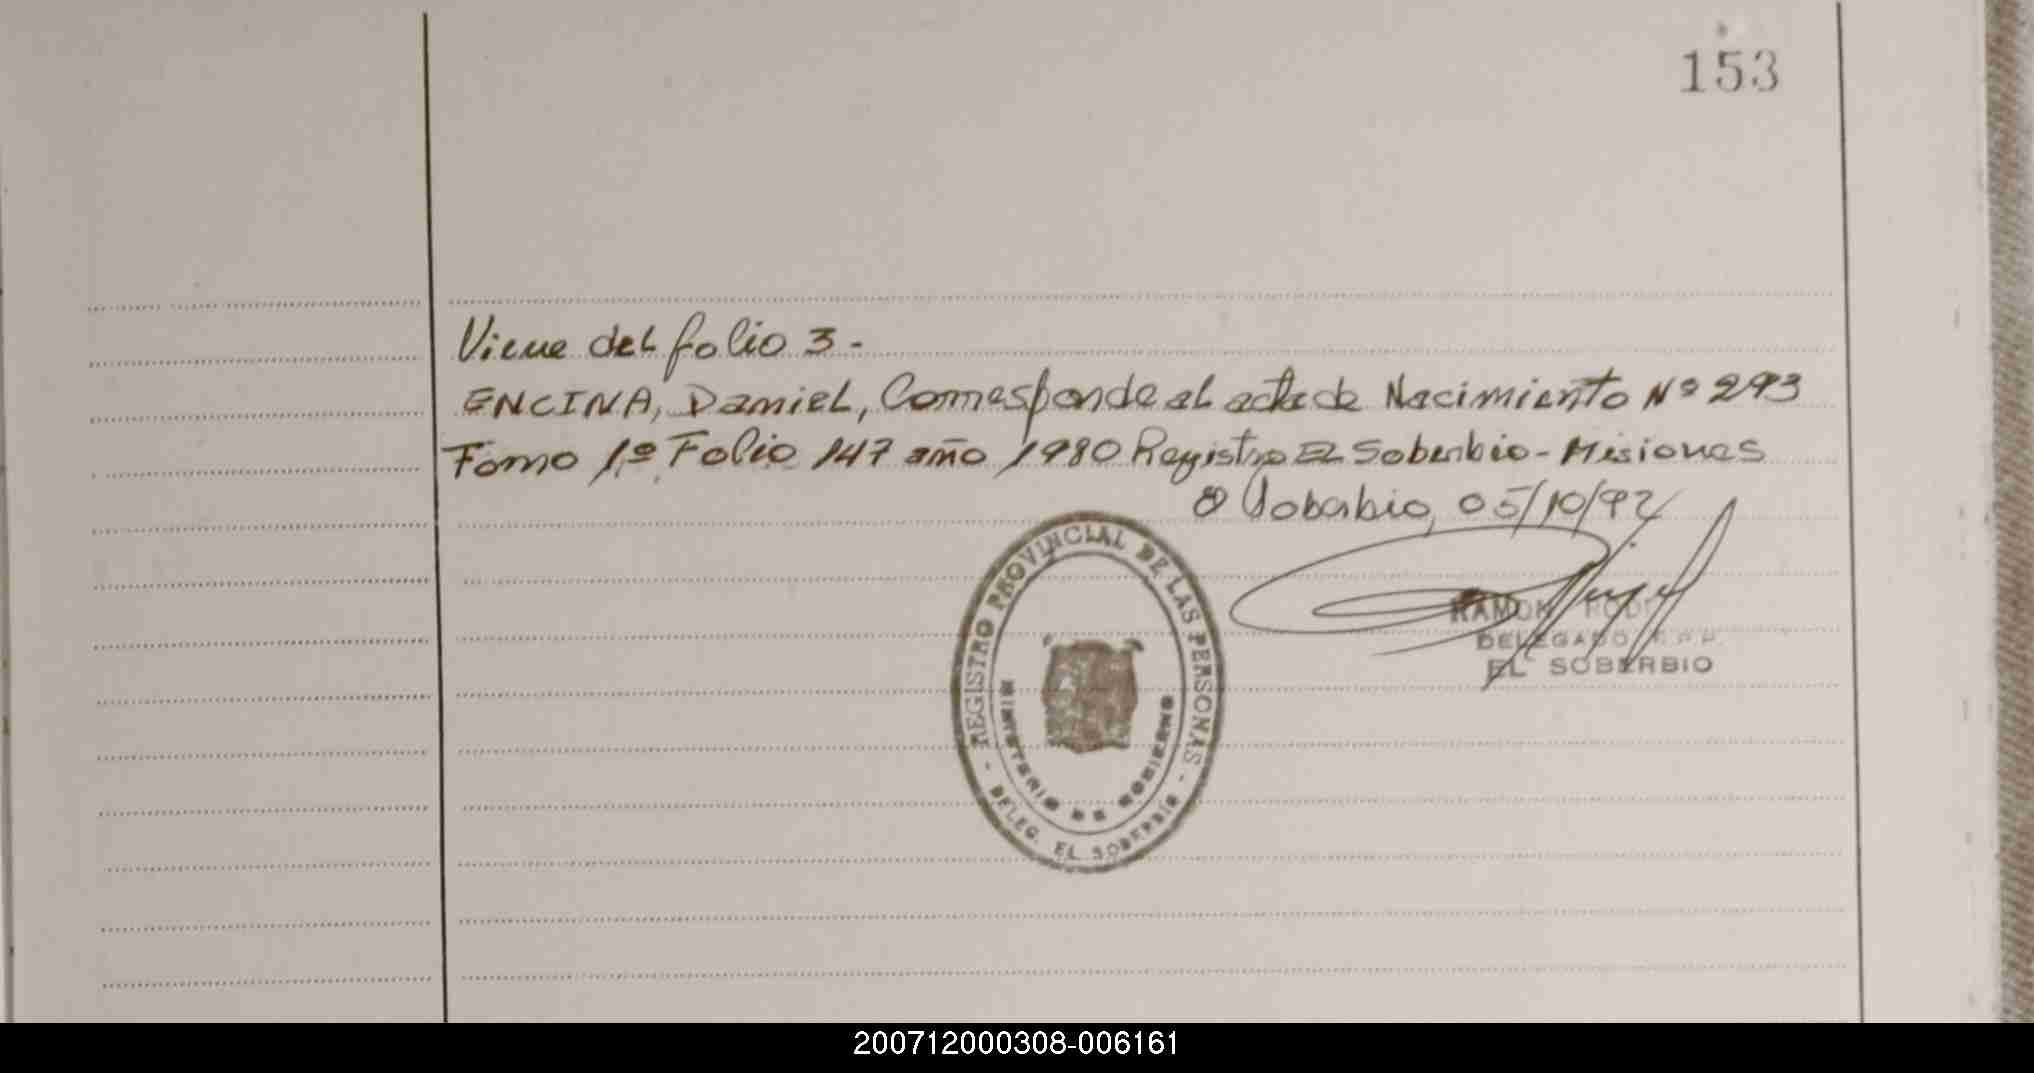 153
Viene del folio 3 -
ENCINA, Daniel, Corresponde al acta de Nacimiento Nº 293
Tomo 1º Folio 147 año 1980 Registro El Soberbio - Misiones
El Soberbio, 05/10/92
REGISTRO PROVINCIAL DE LAS PERSONAS
MINISTERIO DE GOBIERNO
- DELEG. EL SOBERBIO -
RAMON
DELEGADO R.P.P.
EL SOBERBIO
200712000308-006161